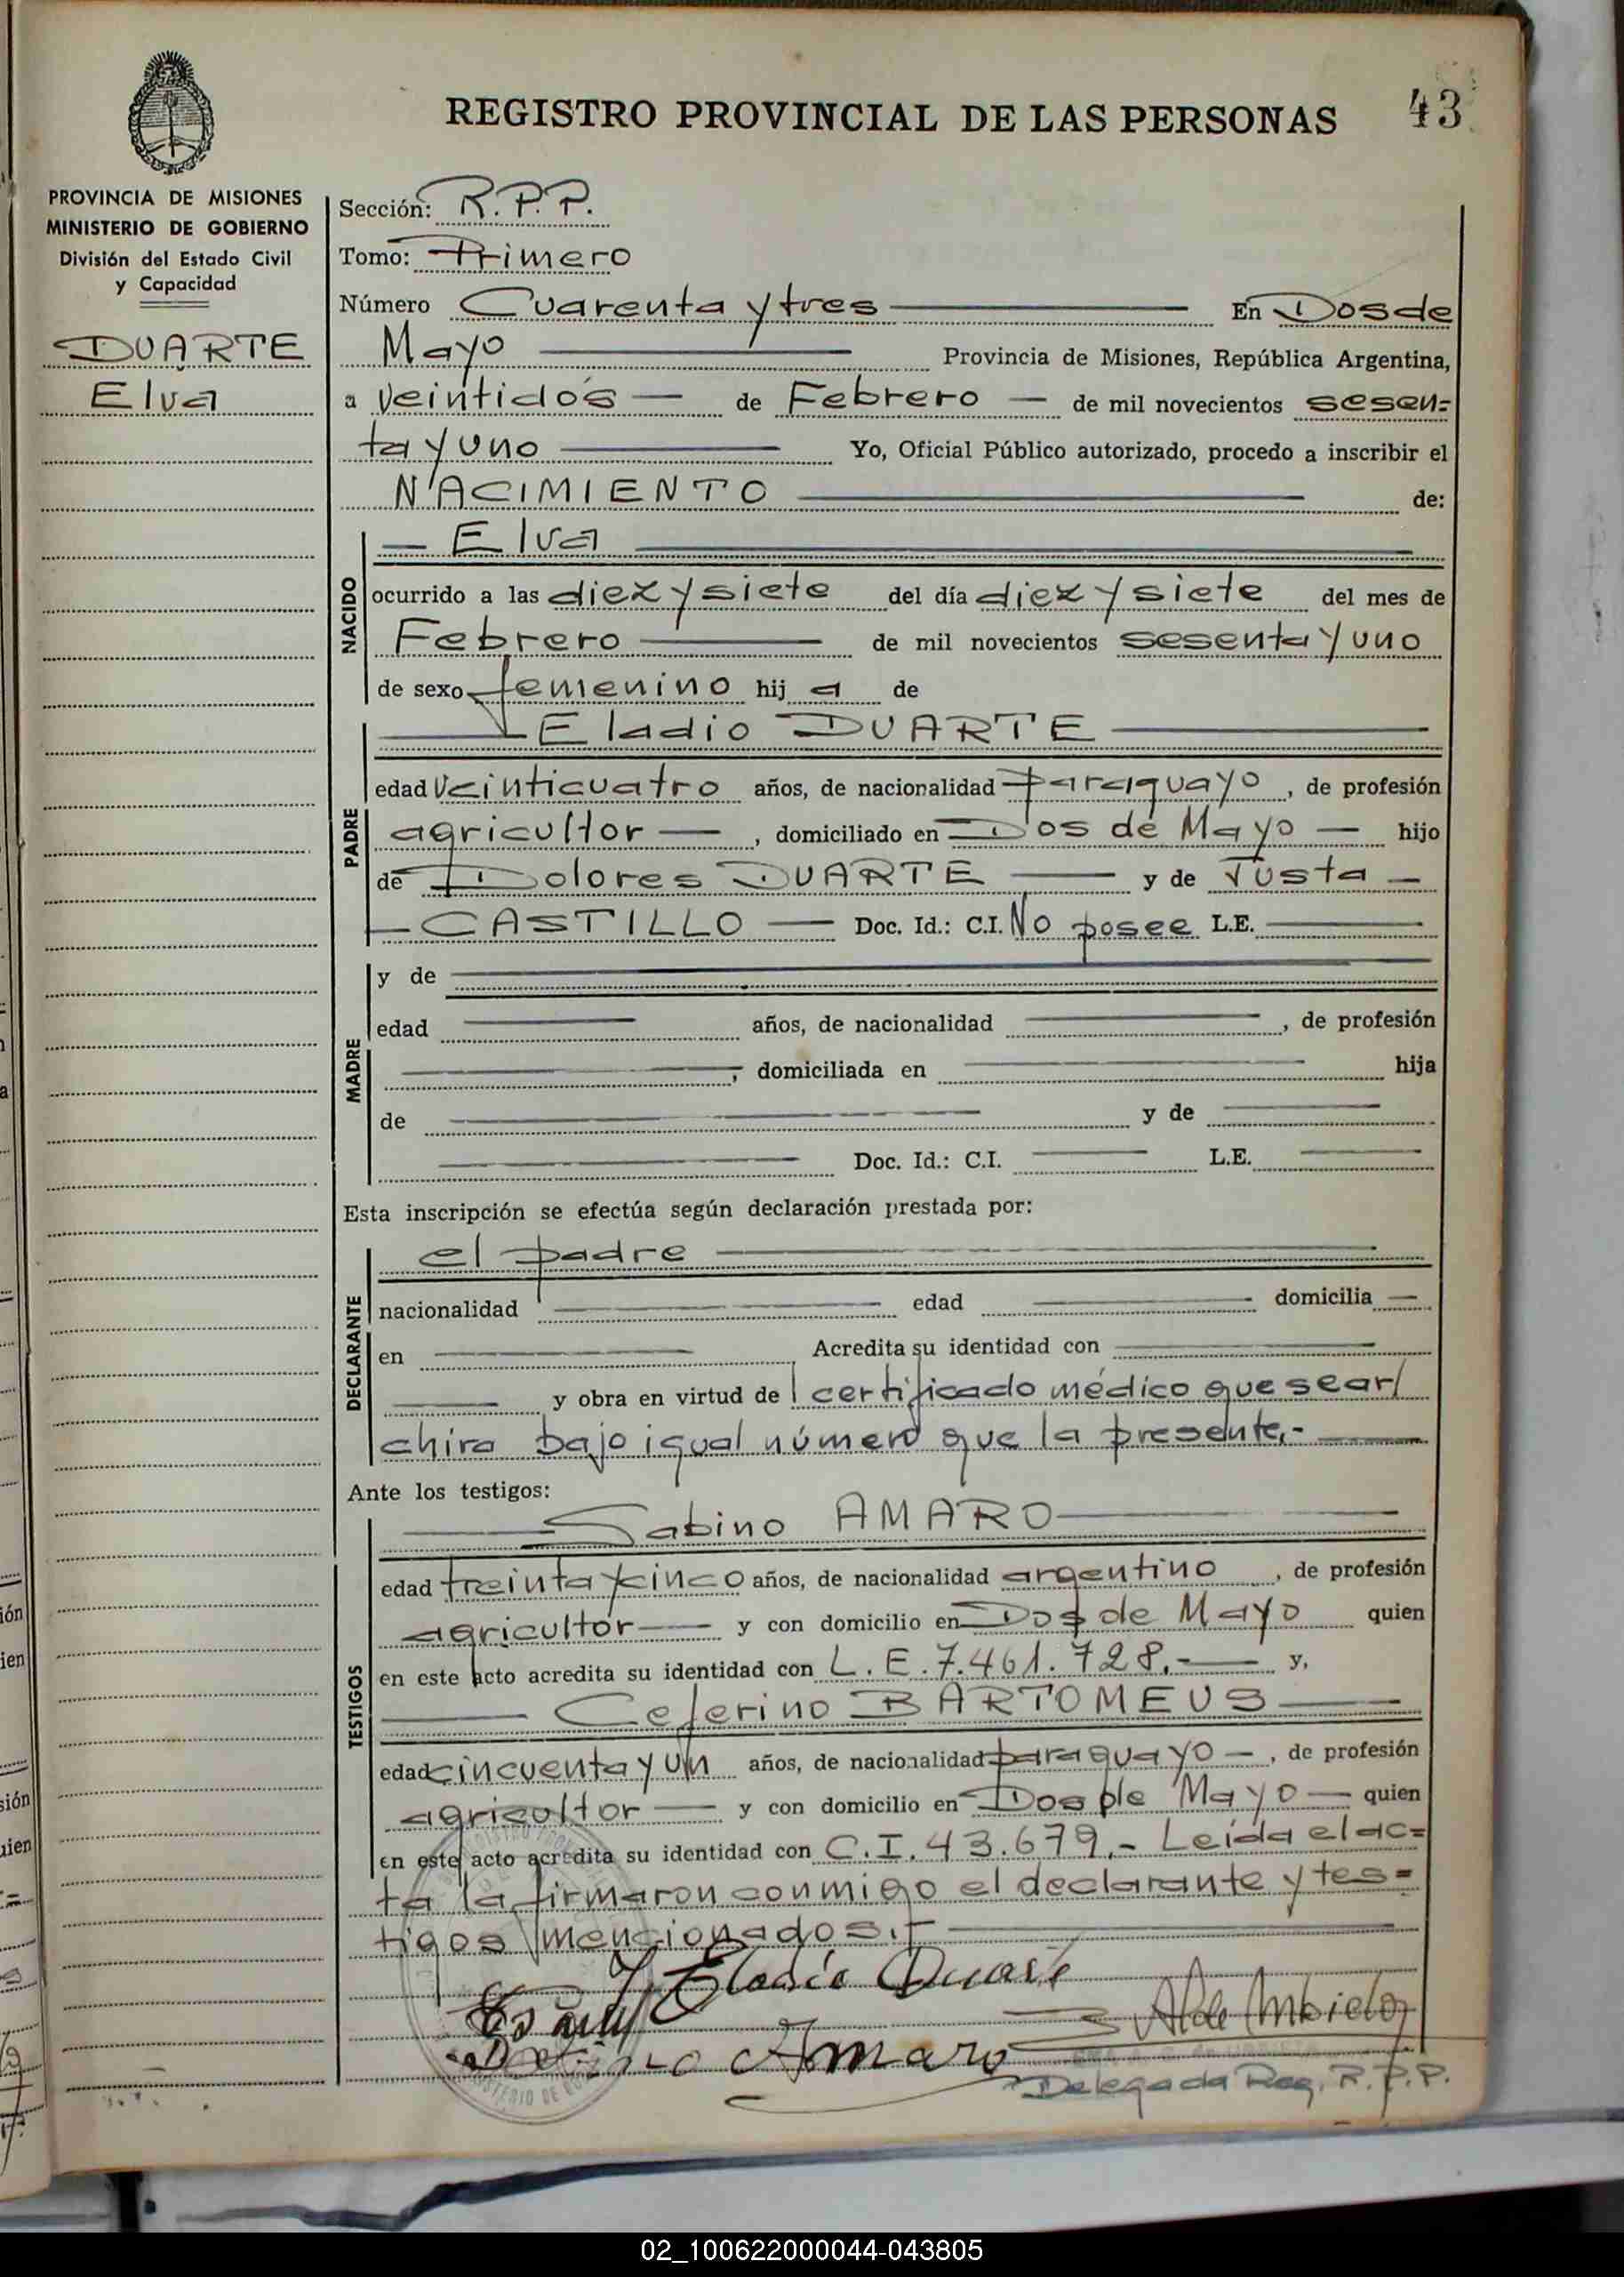 REGISTRO PROVINCIAL DE LAS PERSONAS 43
PROVINCIA DE MISIONES
MINISTERIO DE GOBIERNO
División del Estado Civil
y Capacidad
DUARTE
Elva
Sección: R.P.P.
Tomo: Primero
Número Cuarenta y tres En Dos de
Mayo Provincia de Misiones, República Argentina,
a veintidós de Febrero de mil novecientos sesen=
ta y uno Yo, Oficial Público autorizado, procedo a inscribir el
NACIMIENTO de:
NACIDO
Elva
ocurrido a las diez y siete del día diez y siete del mes de
Febrero de mil novecientos sesenta y uno
de sexo femenino hij a de
PADRE
Eladio DUARTE
edad veinticuatro años, de nacionalidad paraguayo, de profesión
agricultor, domiciliado en Dos de Mayo hijo
de Dolores DUARTE y de Justa
CASTILLO Doc. Id.: C.I. No posee L.E.
MADRE
y de
edad años, de nacionalidad , de profesión
, domiciliada en hija
de y de
Doc. Id.: C.I. L.E.
Esta inscripción se efectúa según declaración prestada por:
DECLARANTE
el padre
nacionalidad edad domicilia
en Acredita su identidad con
y obra en virtud de 1 certificado médico que se ar/
chiva bajo igual número que la presente.-
Ante los testigos:
TESTIGOS
Sabino AMARO
edad treinta y cinco años, de nacionalidad argentino, de profesión
agricultor y con domicilio en Dos de Mayo quien
en este acto acredita su identidad con L.E. 7.461.728.- y,
Ceferino BARTOMEUS
edad cincuenta y un años, de nacionalidad paraguayo, de profesión
agricultor y con domicilio en Dos de Mayo quien
en este acto acredita su identidad con C.I. 43.679.- Leída el ac=
ta la firmaron conmigo el declarante y tes=
tigos mencionados.-
Eladio Duarte
Amaro
Delegada Reg. R.P.P.
02_100622000044-043805